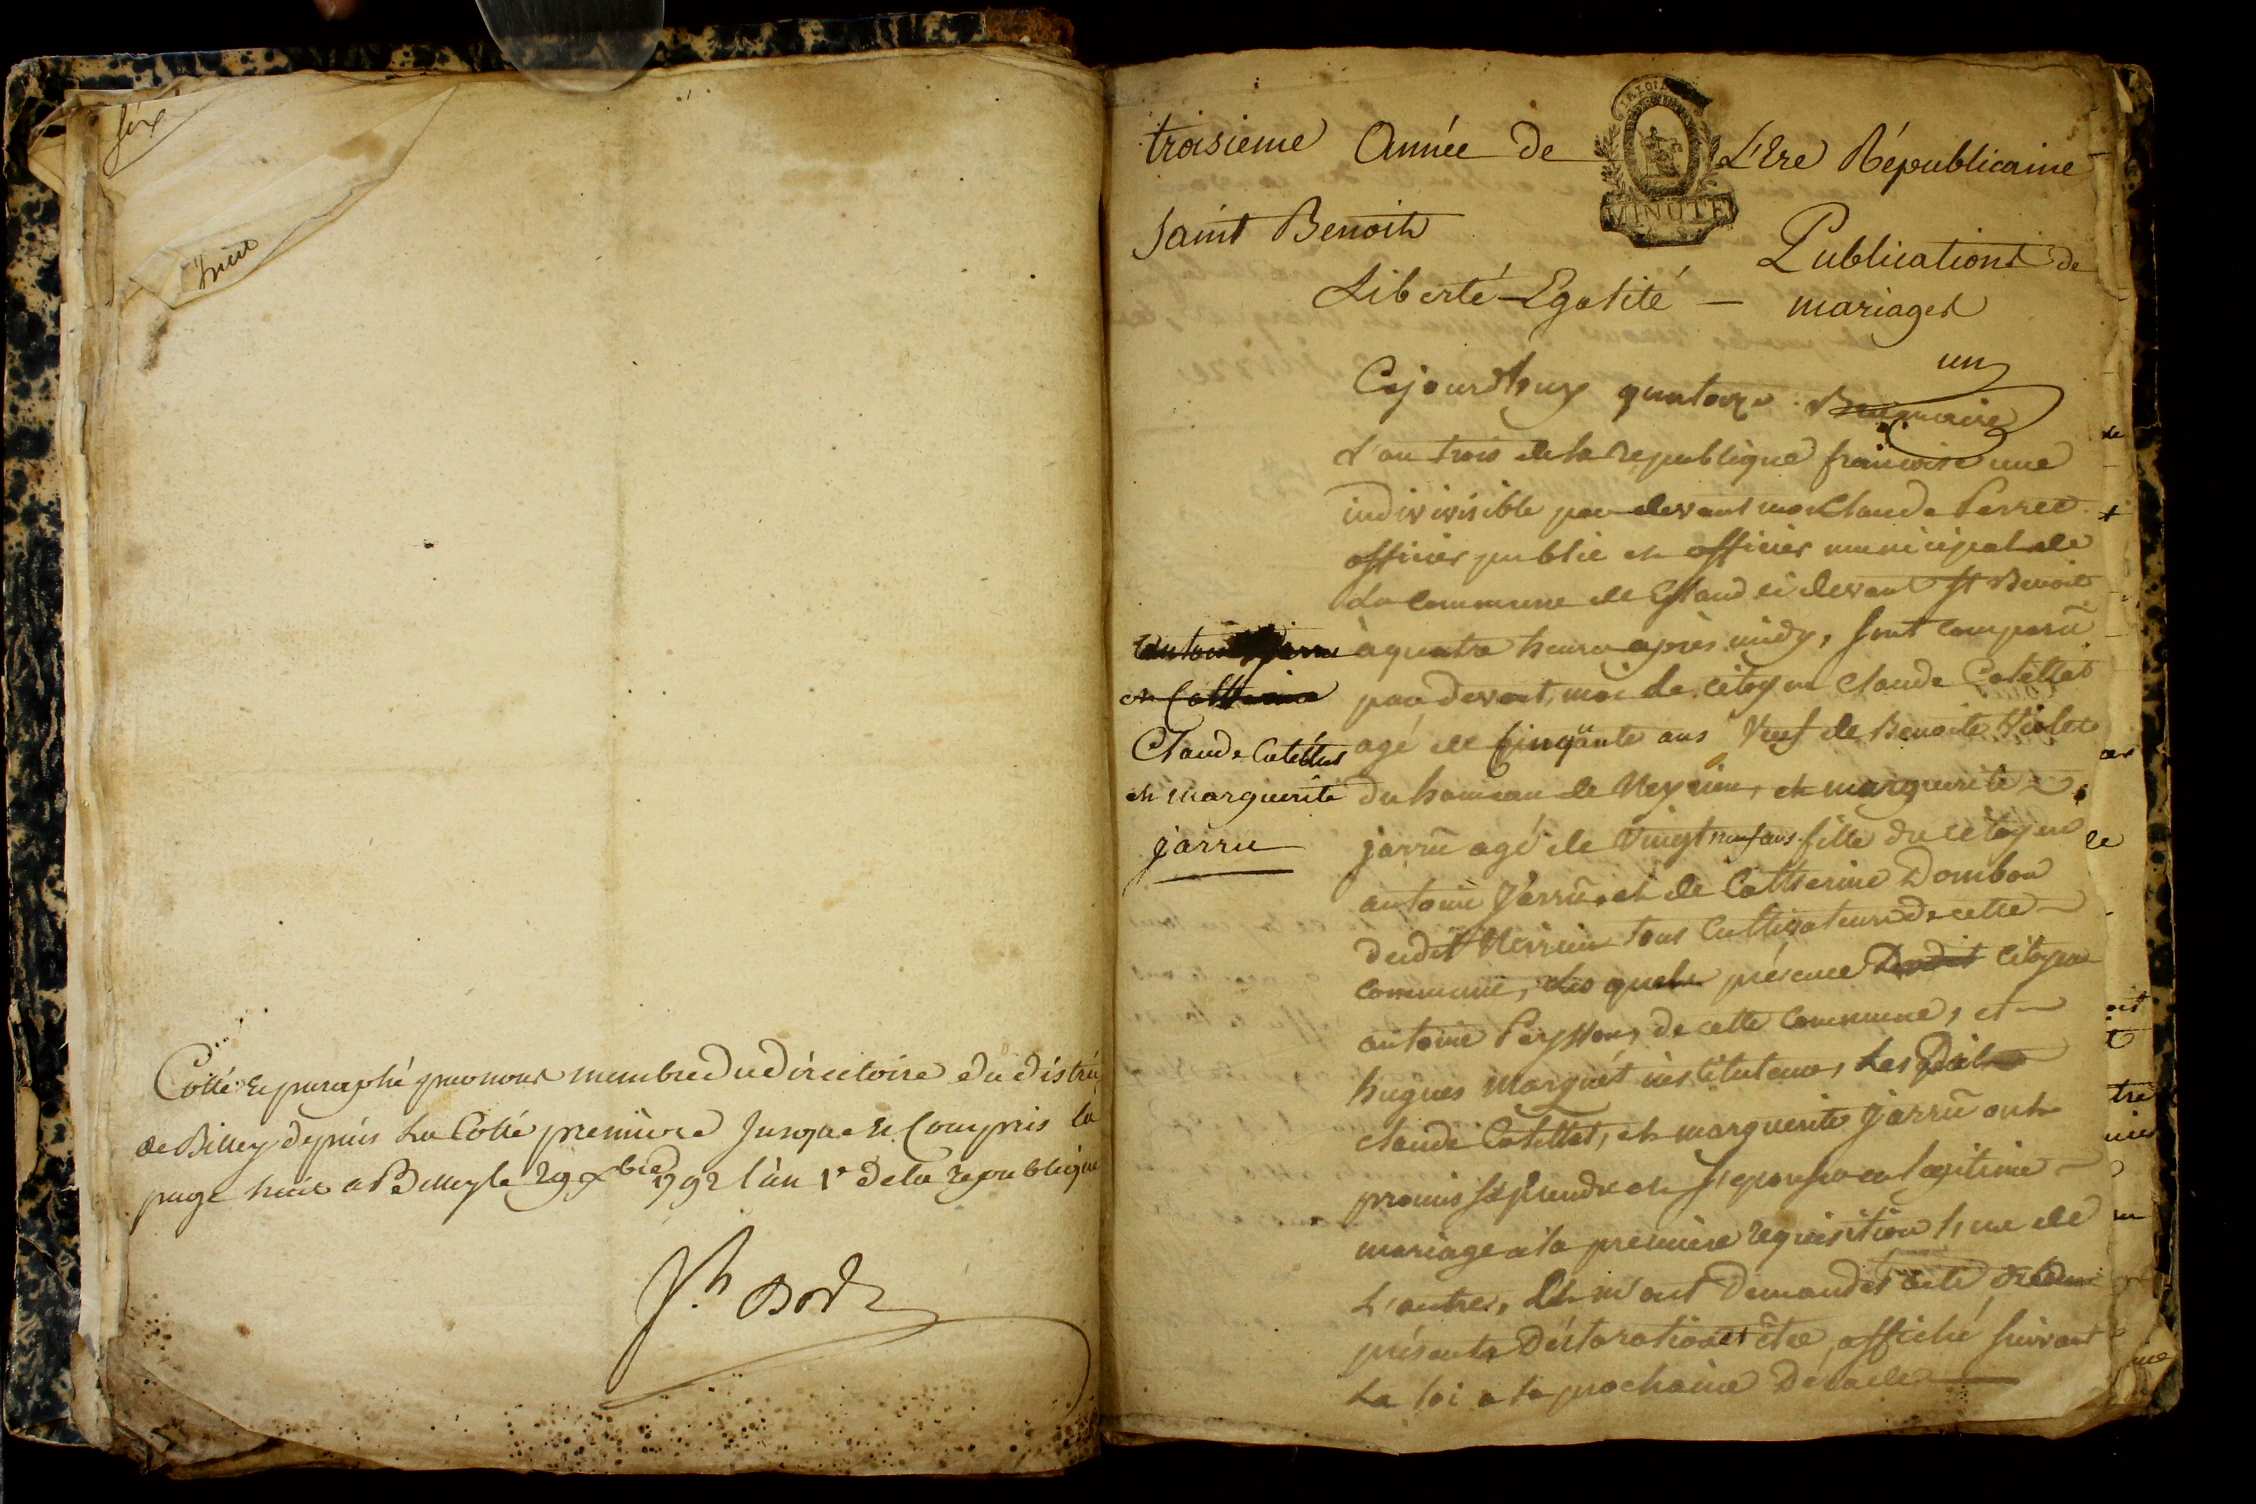 six
huit
Cotté et paraphé par nous membre du directoire du district
de Billey depuis La Cotte premiere Jusque et Compris la
page huit a Belley le 29 xbre 1792 l'an 1r de la republique
Jh Bord
troisieme Année de L'Ere Républicaine
MINUTE
Saint Benoit
Publications de
Liberté Egalité — mariages
un
Cejourd'huy quatorze Brumaire
L'an trois de la republique francoise une
indivivisible par devant moi Claude Perret
officier public et officier municipal de
La Commune de Gland ci devant St Benoit
à quatre heures après midy, sont comparu
par devant moi le citoyen Claude Catettet
agé de Cinquante ans Veuf de Benoite Violet
du hameau de Neyrieu, et marguerite
jarru agé de Vingt neuf ans fille du citoyen
antoine Jarru, et de Catherine Dombon
dudit Neirieu tous Cultivateurs de cette
commune, des quels présence Dudit Citoyen
antoine Peysson, de cette commune, et
hugues Marquet instituteur, Les
claude Catettet, et marguerite Jarru ont
promis se prendre et s'epouser en legitime
mariage a la premiere requisition l'un de
L'autre, Et m'ont demandés acte
présente Déclaration et être affiché suivant
La loi a la prochaine Décade
et Catherine
Claude Catettet
et Marguerite
jarru